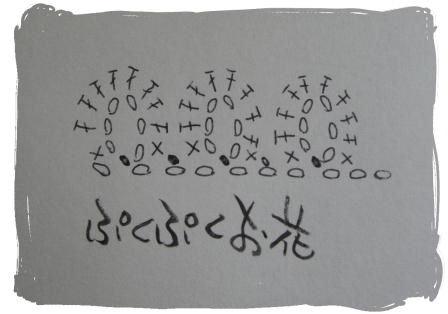 ぷくぷくお花